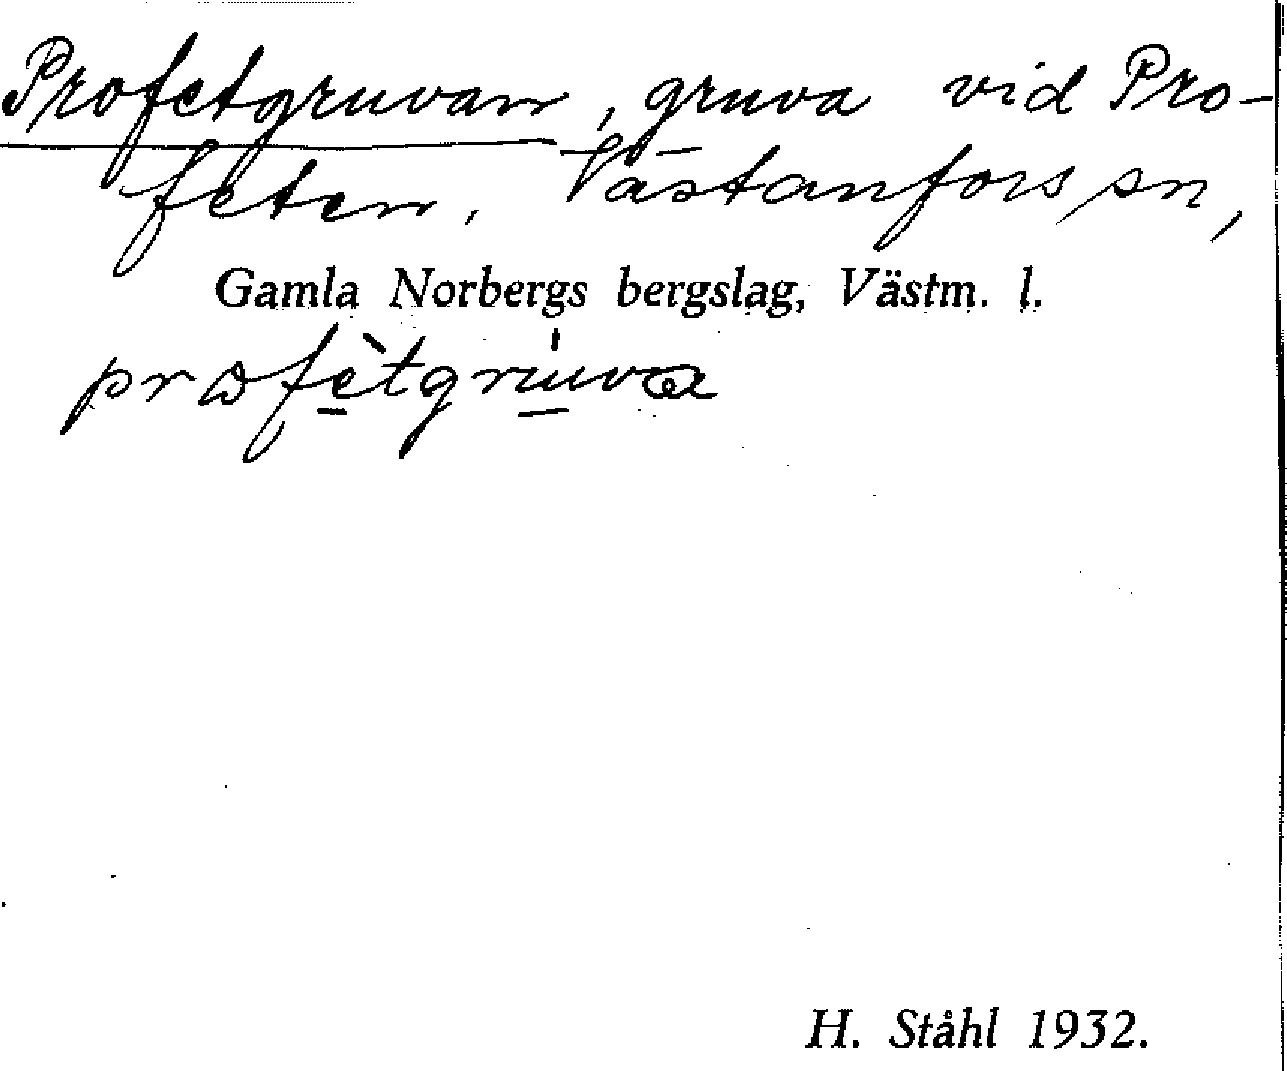 Profetgruvan, gruva vid Pro-
feten, Västanfors sn,
Gamla Norbergs bergslag, Västm. l.
profe̠̍̀tgru̠̍va
H. Ståhl 1932.